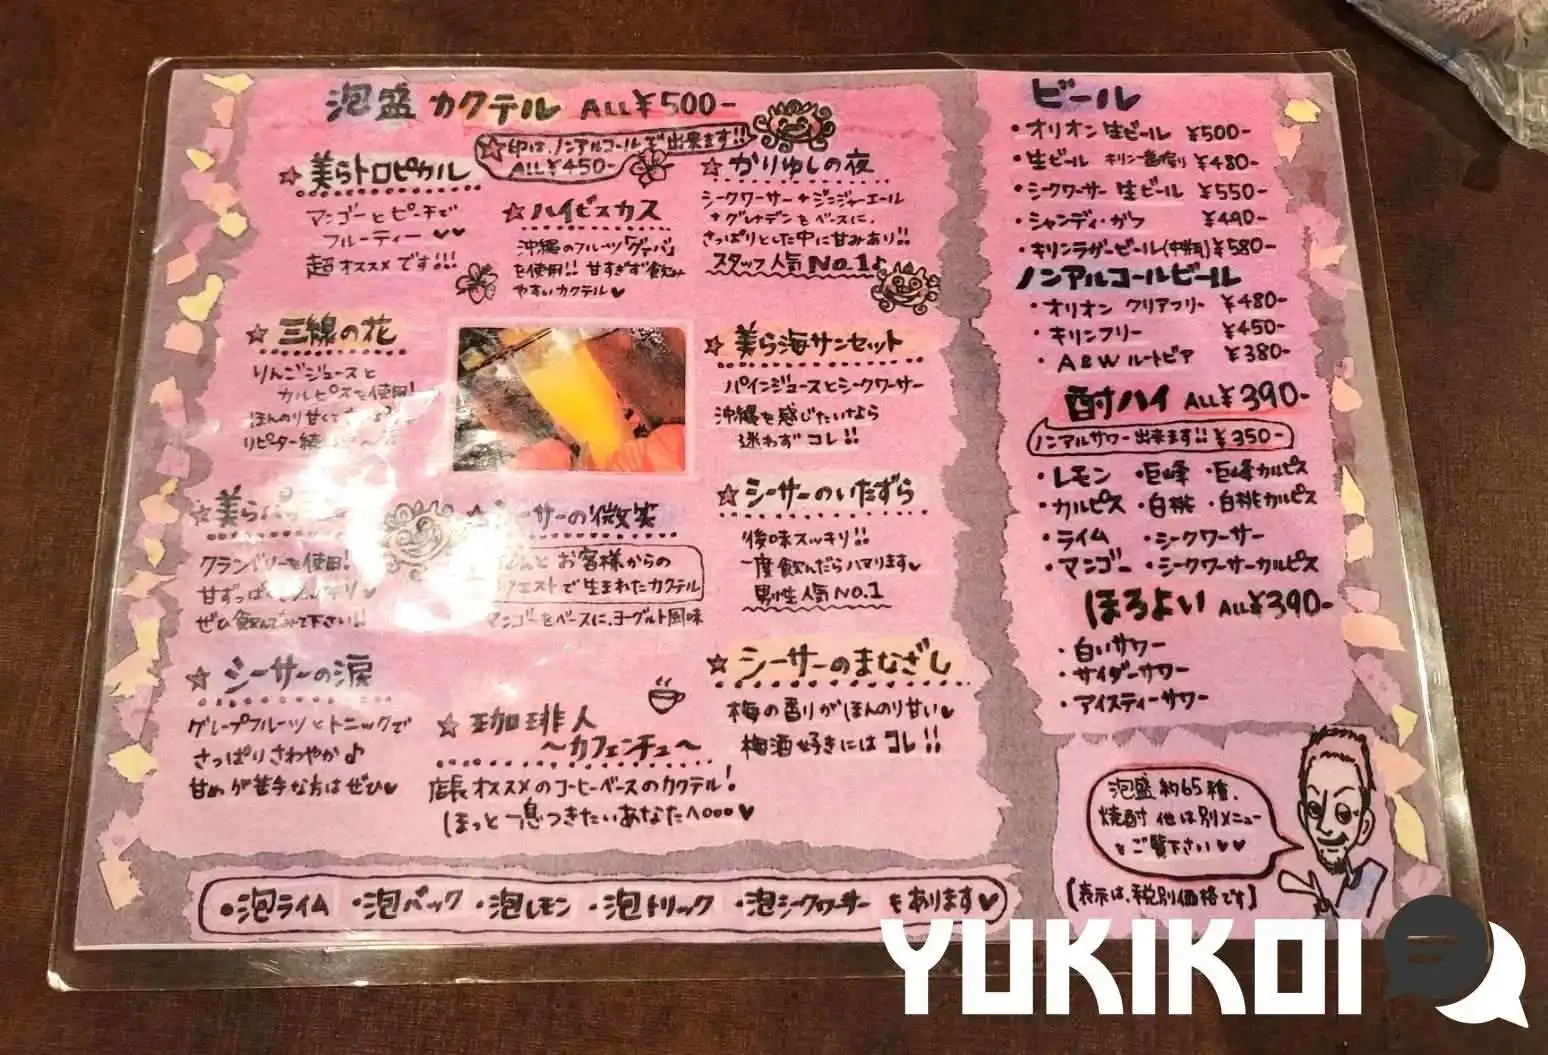 泡盛カクテル ALL¥500-
☆印は、ノンアルコールで出来ます!!
ALL¥450-
☆美らトロピカル
マンゴーとピーチで
フルーティー♥♥
超オススメです!!!
☆ハイビスカス
沖縄のフルーツ「グァバ」
を使用!! 甘すぎず飲み
やすいカクテル♥
☆かりゆしの夜
シークワーサー+ジンジャーエール
+グレナデンをベースに、
さっぱりとした中に甘みあり!!
スタッフ人気No.1♪
☆三線の花
りんごジュースと
カルピスを使用!
ほんのり甘くて
リピーター続
☆美ら海サンセット
パインジュースとシークワーサー
沖縄を感じたいなら
迷わずコレ!!
☆美ら
クランベリーを使用!
甘ずっぱくて
ぜひ飲んでみて下さい!!
シーサーの微笑
お客様からの
リクエストで生まれたカクテル
マンゴーをベースに、ヨーグルト風味
☆シーサーのいたずら
後味スッキリ!!
一度飲んだらハマります♥
男性人気NO.1
☆シーサーの涙
グレープフルーツとトニックで
さっぱりさわやか♪
甘めが苦手な方はぜひ♥
☆珈琲人
〜カフェンチュ〜
店長オススメのコーヒーベースのカクテル!
ほっと一息つきたいあなたへooo♥
☆シーサーのまなざし
梅の香りがほんのり甘い♥
梅酒好きにはコレ!!
•泡ライム •泡バック •泡レモン •泡トリック •泡シークワーサー もあります♥
ビール
•オリオン生ビール ¥500-
•生ビール キリン一番搾り ¥480-
•シークワーサー生ビール ¥550-
•シャンディ・ガフ ¥490-
•キリンラガービール(中瓶)¥580-
ノンアルコールビール
•オリオン クリアフリー ¥480-
•キリンフリー ¥450-
•A&W ルートビア ¥380-
酎ハイ ALL¥390-
ノンアルサワー出来ます!! ¥350-
•レモン •巨峰 •巨峰カルピス
•カルピス •白桃 •白桃カルピス
•ライム •シークワーサー
•マンゴー •シークワーサーカルピス
ほろよい ALL¥390-
•白いサワー
•サイダーサワー
•アイスティーサワー
泡盛約65種、
焼酎他は別メニュー
をご覧下さい♥♥
【表示は、税別価格です】
YUKIKOI